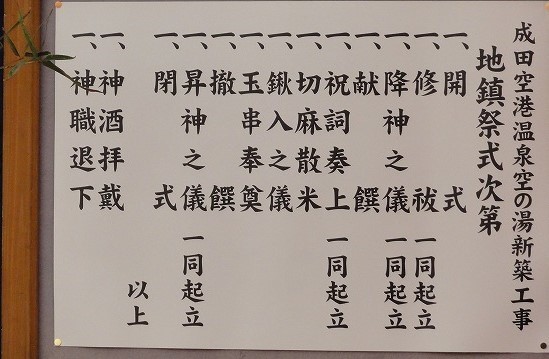 成田空港温泉空の湯新築工事
地鎮祭式次第
一、開式
一、修祓 一同起立
一、降神之儀 一同起立
一、献饌
一、祝詞奏上 一同起立
一、切麻散米
一、鍬入之儀
一、玉串奉奠
一、撤饌
一、昇神之儀 一同起立
一、閉式
以上
一、神酒拝戴
一、神職退下